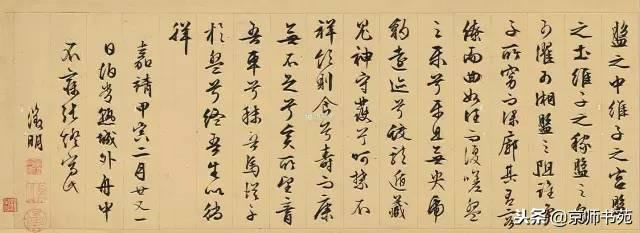 盤之中維子之宮盤
之土維子之稼盤之泉
可濯可湘盤之阻誰爭
子所窈而深廓其有容
繚而曲如往而復嗟盤
之樂兮樂且無央虎
豹遠迹兮蛟龍遁藏
鬼神守護兮呵禁不
祥飲則食兮壽而康
無不足兮奚所望膏
吾車兮秣吾馬從子
於盤兮終吾生以徜
徉
嘉靖甲寅二月廿又一
日泊城外舟中
不寐燈寫此
徵明
头条@京师书苑